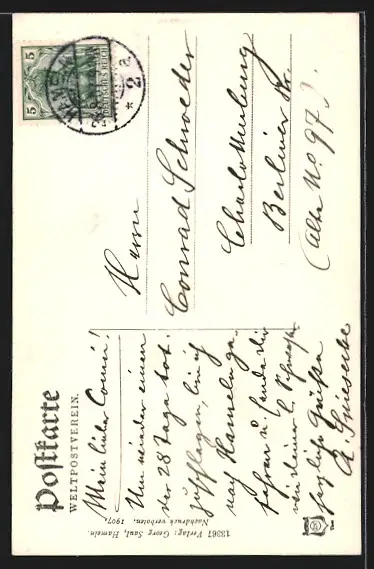 Postkarte
WELTPOSTVEREIN.
Mein lieber Conni!
Um wieder einen
der 28 Tage tot-
zuschlagen, bin ich
nach Hameln ge-
fahren u. sende Dir
von deiner l.
herzliche Grüße
A.
Herrn
Conrad Schroeder
Charlottenburg
Berliner Str.
(alte No. 97).
5 5
DEUTSCHES REICH
13367 Verlag: Georg Saul, Hameln.
Nachdruck verboten. 1907.